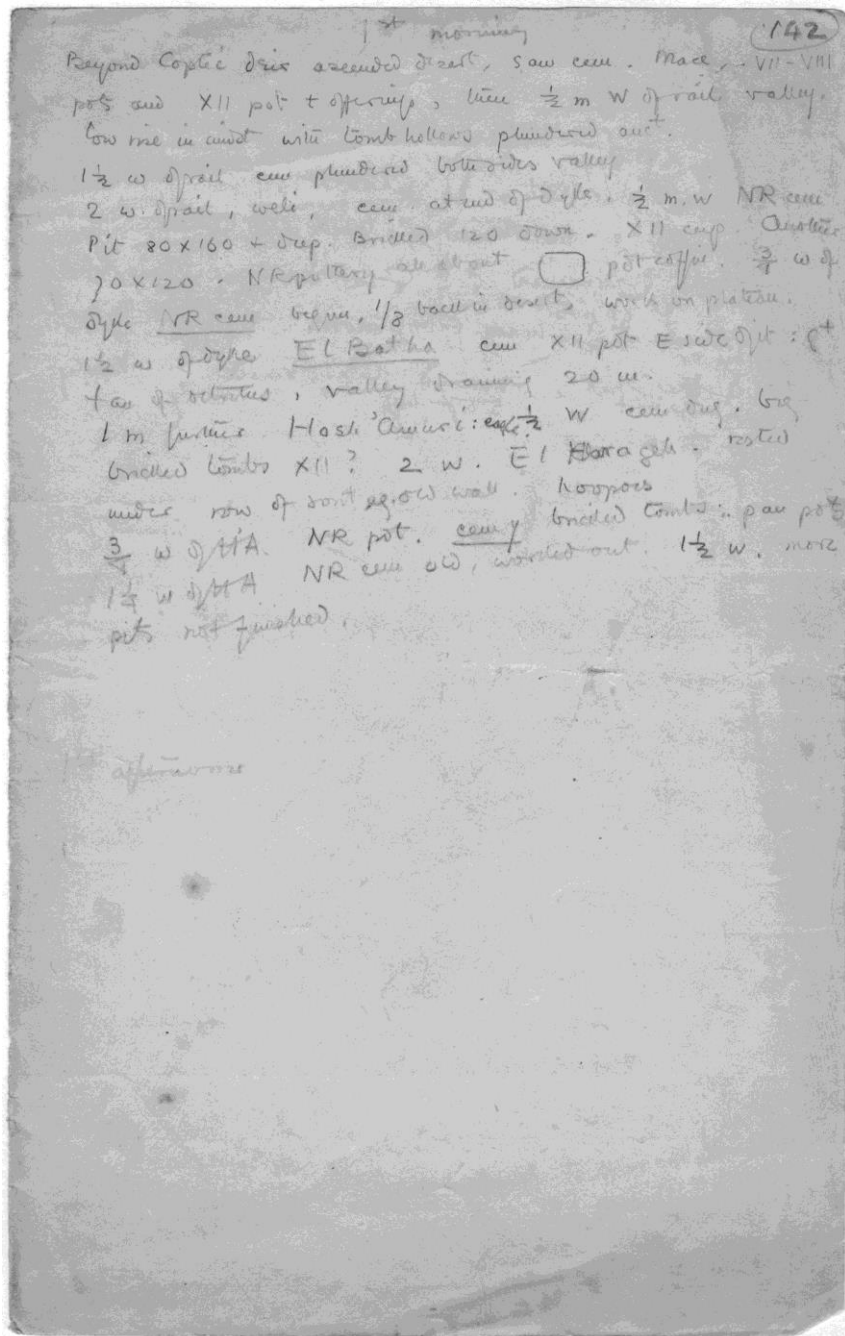 1st morning
142
Beyond Coptic deir ascended desert, saw cem. Mace, VII-VIII
pots and XII pot + offerings, then ½ m W of rail valley.
low rise in midst with tomb hollows plundered anct.
1½ w of rail cem plundered both sides valley
2 w. of rail, weli, cem. at end of dyke. ½ m. w NR cem
Pit 80 x 160 + deep. Bricked 120 down. XII cup. Another
70 x 120. NR pottery all about pot coffin. ¾ w of
dyke NR cem begun, 1/3 back in desert, work on plateau.
1½ w of dyke El Batha cem XII pot E side of it:
fan of detritus, valley draining 20 m.
1 m further Hosh 'Amuri: ½ W cem dug. big
bricked tombs XII? 2 w. El rested
under row of sont old wall. hoopoes
¾ w of HA. NR pot. cemy bricked tombs: pan pots
1¼ w of HA NR cem old, worked out. 1½ w. more
pits not finished.
1st afternoon